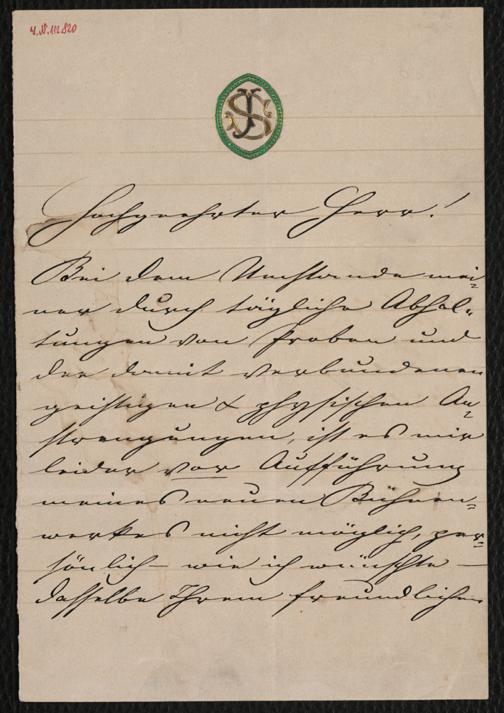 JS
Hochgeehrter Herr!
Bei dem Umstande mei=
ner durch tägliche Abhal=
tungen von Proben und
der damit verbundenen
geistigen & physischen An=
strengungen, ist es mir
leider vor Aufführung
meines neuen Bühnen=
werkes nicht möglich, per=
sönlich – wie ich wünschte –
dasselbe Ihrem freundlichen